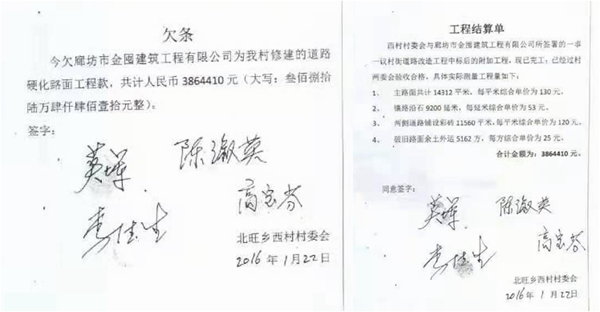 欠条
今欠廊坊市金囤建筑工程有限公司为我村修建的道路
硬化路面工程款，共计人民币 3864410 元（大写：叁佰捌拾
陆万肆仟肆佰壹拾元整）。
签字：
陈淑英
高宝芬
北旺乡西村村委会
2016 年 1 月 22 日
工程结算单
西村村委会与廊坊市金囤建筑工程有限公司所签署的一事
一议村街道路改造工程中标后的附加工程，现已完工；已经过村
两委会验收合格，具体实际测量工程量如下：
1、 主路面共计 14312 平米，每平米综合单价为 130 元。
2、 镶路沿石 9200 延米，每延米综合单价为 53 元。
3、 两侧道路铺设彩砖 11560 平米，每平米综合单价为 120 元。
4、 破旧路面余土外运 5162 方，每方综合单价为 25 元。
合计金额为：3864410 元。
同意签字：
陈淑英
高宝芬
北旺乡西村村委会
2016 年 1 月 22 日